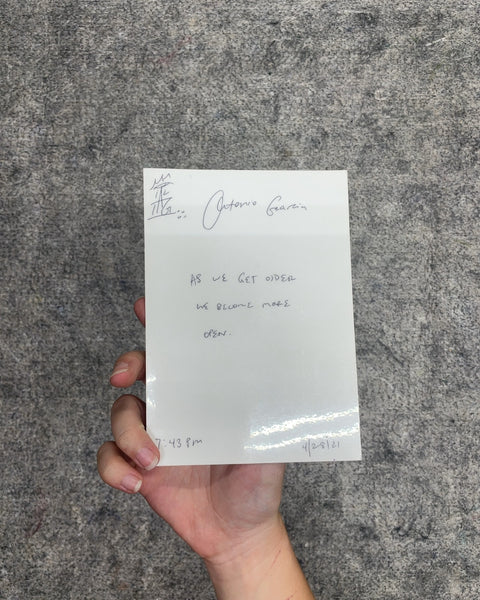 Antonio Garcia
AS WE GET OLDER
WE BECOME MORE
OPEN.
7:43 PM
4/28/21